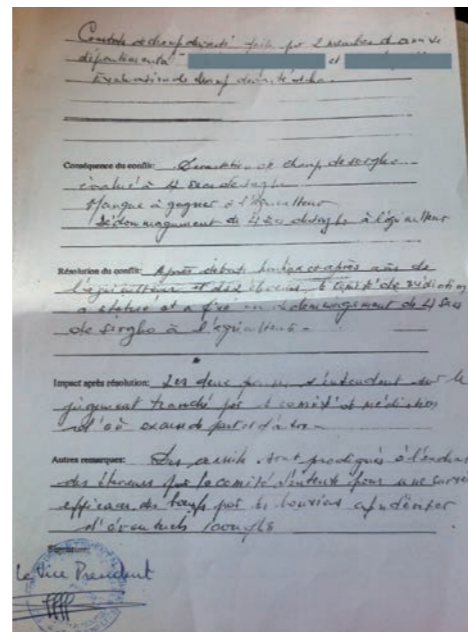 Constats de champ dévasté faits par 2 membres du comité
départemental - et
Evaluation de champ dévasté
Conséquence du conflit: Dévastation de champ de sorgho
évalué à 4 sacs de sorgho
Manque à gagner à l'agriculteur
Dédommagement de 4 sacs de sorgho à l'agriculteur
Résolution du conflit: Après débats houleux et après avis de
l'agriculteur et des éleveurs, le comité de médiation
a statué et a fixé un dédommagement de 4 sacs
de sorgho à l'agriculteur -
Impact après résolution: Les deux parties s'entendent sur le
jugement tranché par le comité de médiation
d'où excuse de part et d'autre -
Autres remarques: Des conseils sont prodigués à l'endroit
des éleveurs par le comité d'entente pour une
efficace des bœufs par les bouviers afin d'éviter
d'éventuels
Signature:
Le Vice President